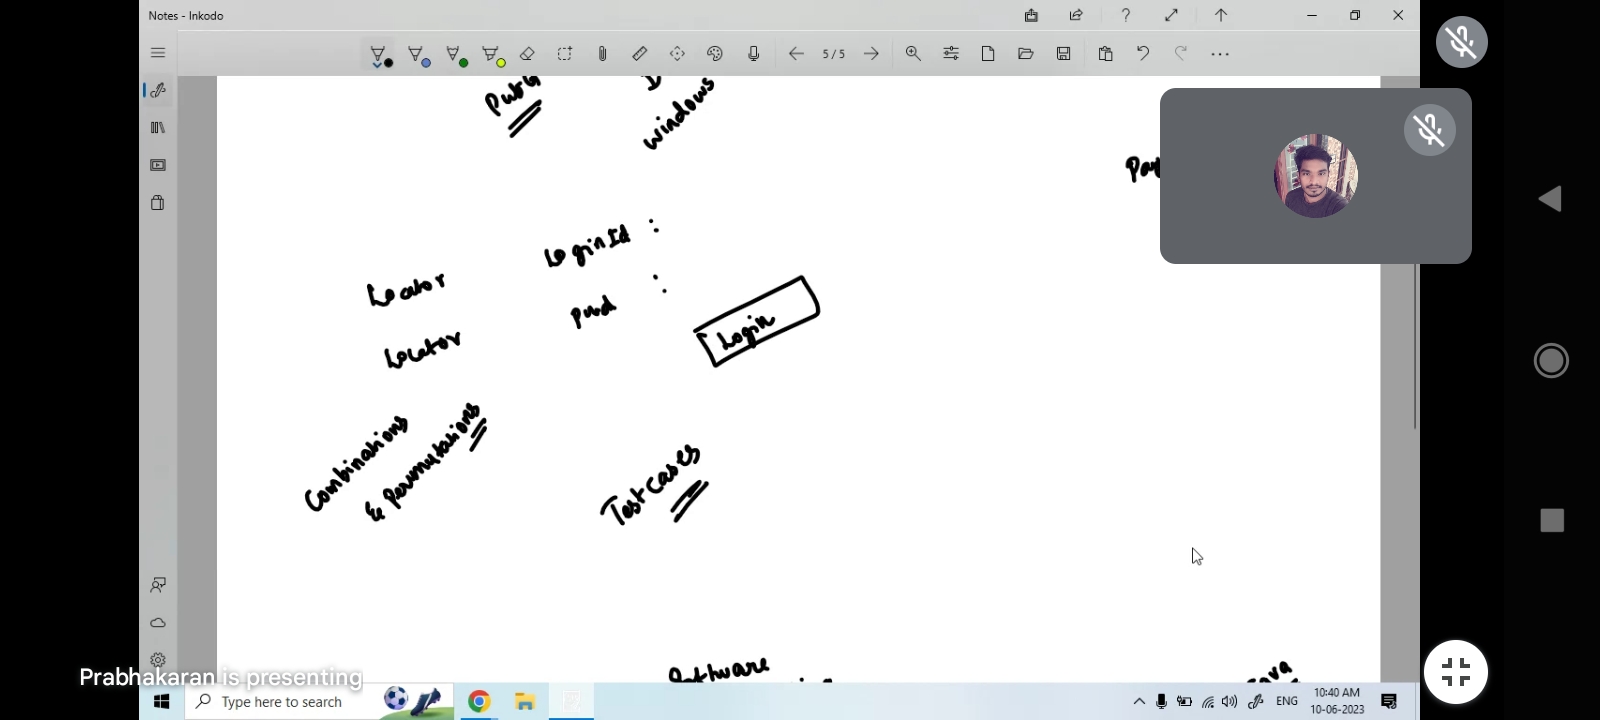 Notes - Inkodo
5/5
windows
Login Id :
Locator
pwd :
Locator
Login
Combinations
& Permutations
Test cases
Software
Prabhakaran is presenting
Type here to search
ENG
10:40 AM
10-06-2023